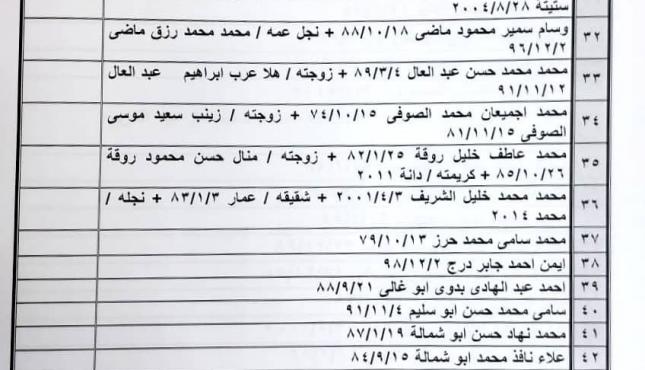 ستيتة ٢٠٠٤/٨/٢٨
٣٢ وسام سمير محمود ماضى ٨٨/١٠/١٨ + نجل عمه / محمد محمد رزق ماضى
٩٦/١٢/٢
٣٣ محمد محمد حسن عبد العال ٨٩/٣/٤ + زوجته / هلا عرب ابراهيم عبد العال
٩١/١١/١٢
٣٤ محمد اجميعان محمد الصوفى ٧٤/١٠/١٥ + زوجته / زينب سعيد موسى
الصوفى ٨١/١١/١٥
٣٥ محمد عاطف خليل روقة ٨٢/١/٢٥ + زوجته / منال حسن محمود روقة
٨٥/١٠/٢٦ + كريمته / دانة ٢٠١١
٣٦ محمد محمد خليل الشريف ٢٠٠١/٤/٣ + شقيقه / عمار ٨٣/١/٣ + نجله /
محمد ٢٠١٤
٣٧ محمد سامى محمد حرز ٧٩/١٠/١٣
٣٨ ايمن احمد جابر درج ٩٨/١٢/٢
٣٩ احمد عبد الهادى بدوى ابو غالى ٨٨/٩/٢١
٤٠ سامى محمد حسن ابو سليم ٩١/١١/٤
٤١ محمد نهاد حسن ابو شمالة ٨٧/١/١٩
٤٢ علاء نافذ محمد ابو شمالة ٨٤/٩/١٥